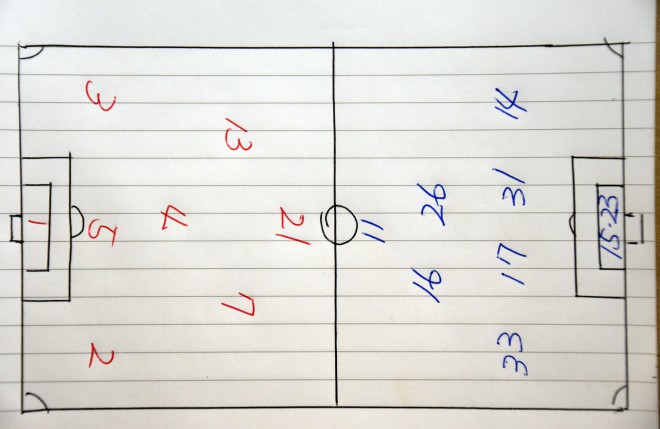 1
3
5
2
4
13
7
21
11
26
16
14
31
17
33
15·23